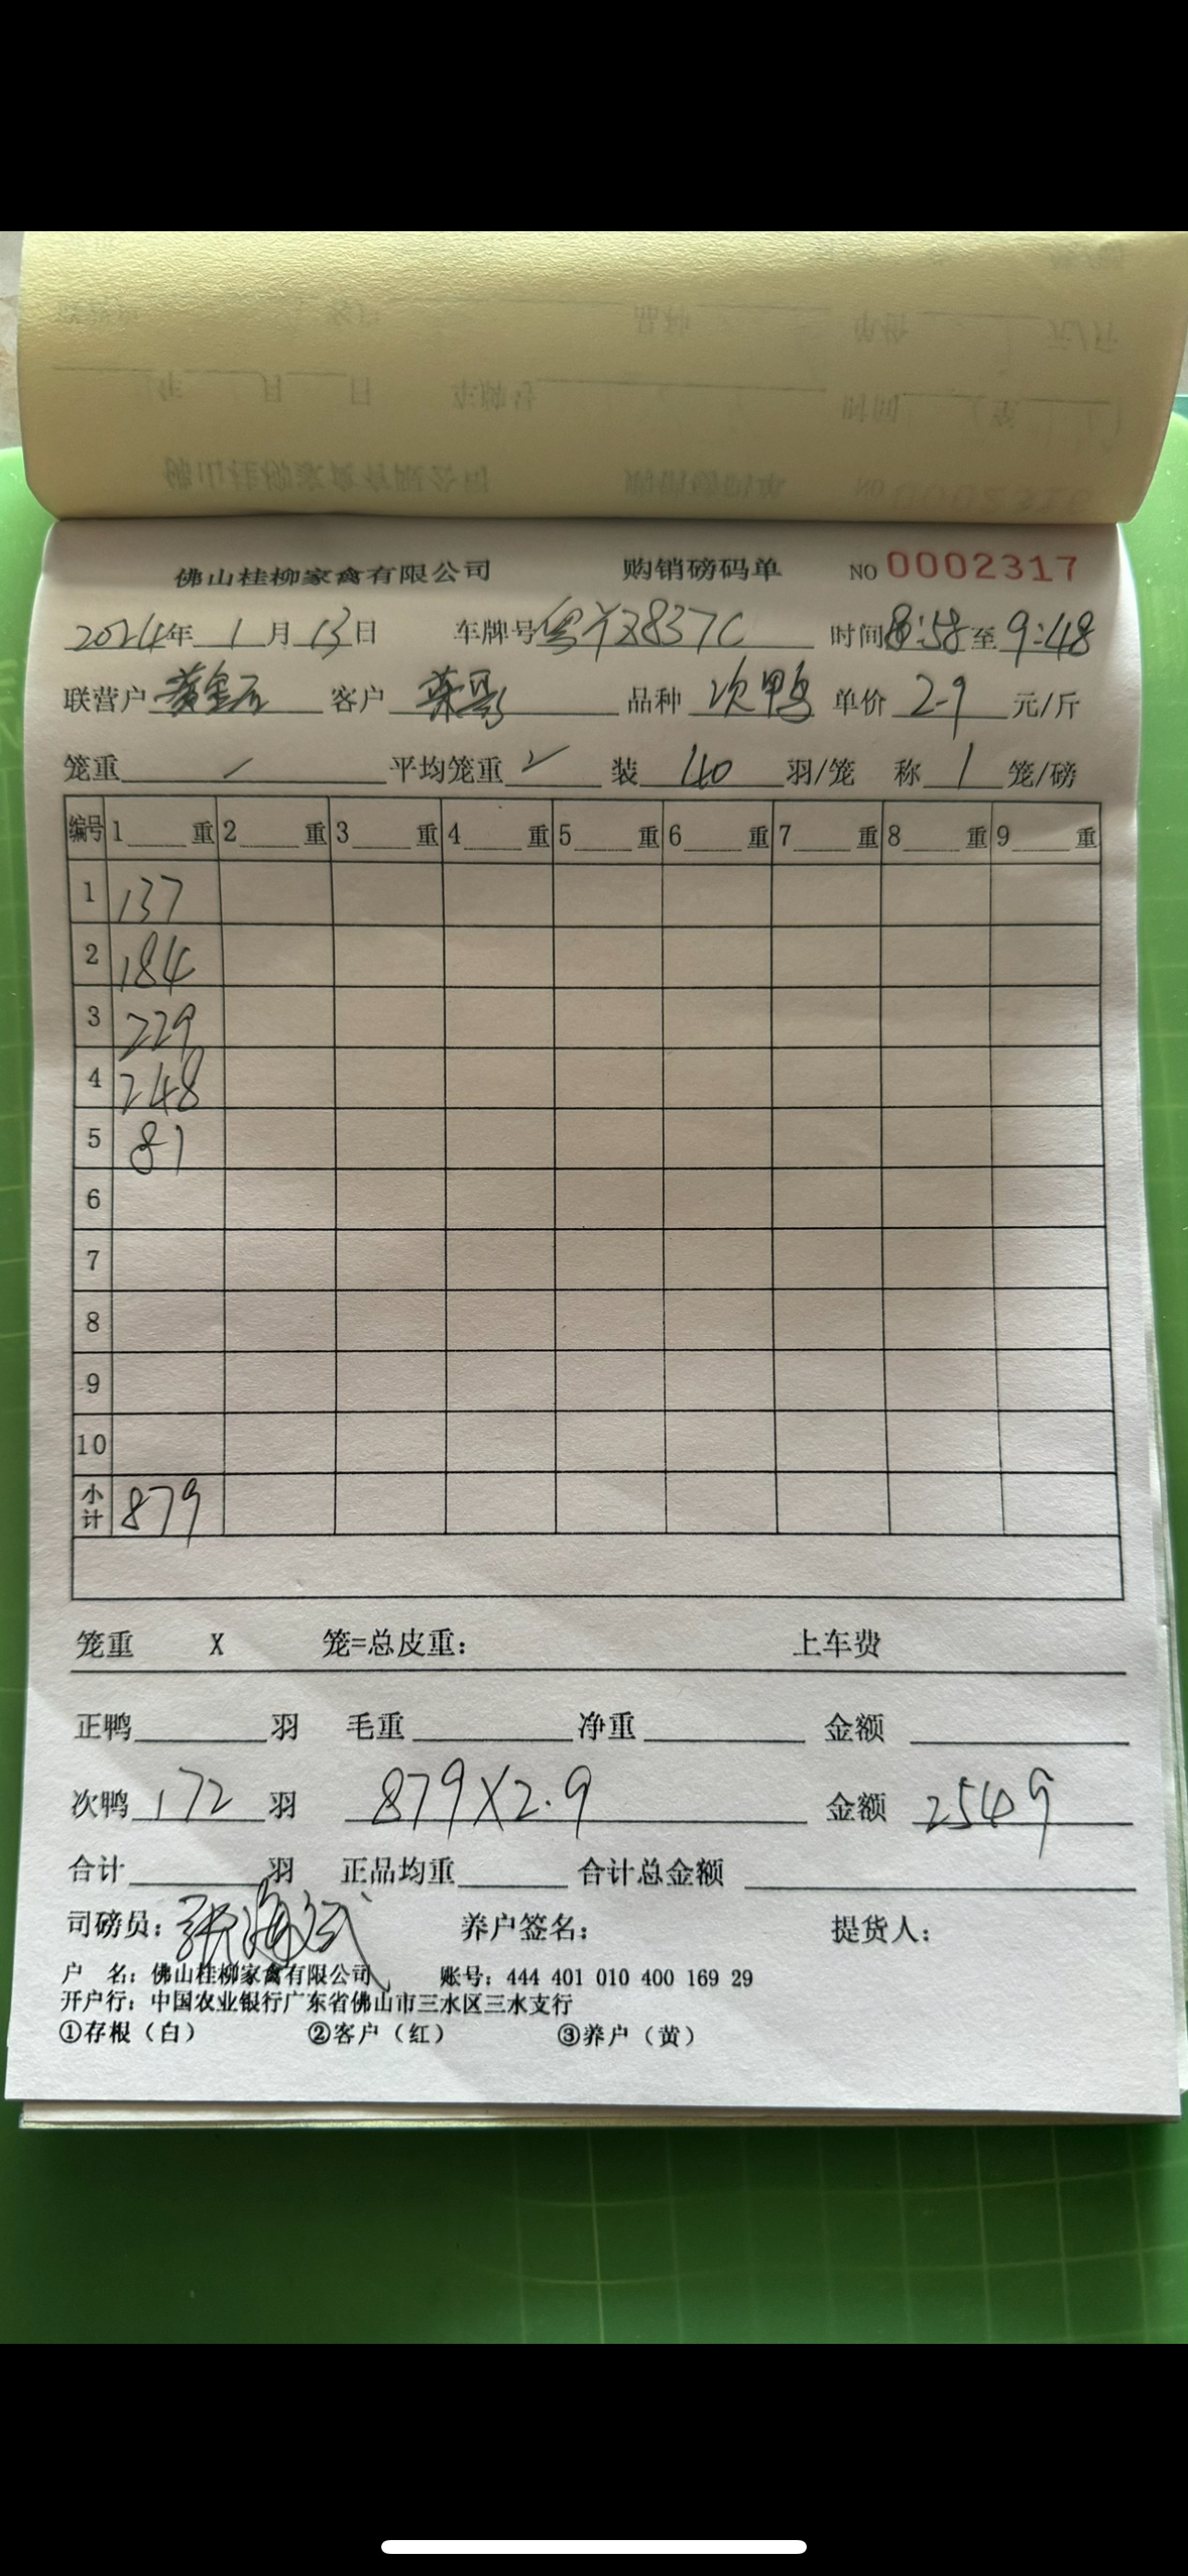 佛山桂柳家禽有限公司 购销磅码单 NO 0002317
2024年 1 月 13 日 车牌号 粤YZ837C 时间 8:58 至 9:48
联营户 黄金石 客户 品种 次鸭 单价 2.9 元/斤
笼重 / 平均笼重 装 40 羽/笼 称 1 笼/磅
编号 1 重 2 重 3 重 4 重 5 重 6 重 7 重 8 重 9 重
1 137
2 184
3 229
4 248
5 81
6
7
8
9
10
小计 879
笼重 X 笼=总皮重: 上车费
正鸭 羽 毛重 净重 金额
次鸭 172 羽 879X2.9 金额 2549
合计 羽 正品均重 合计总金额
司磅员: 养户签名: 提货人:
户 名: 佛山桂柳家禽有限公司 账号: 444 401 010 400 169 29
开户行: 中国农业银行广东省佛山市三水区三水支行
①存根（白） ②客户（红） ③养户（黄）